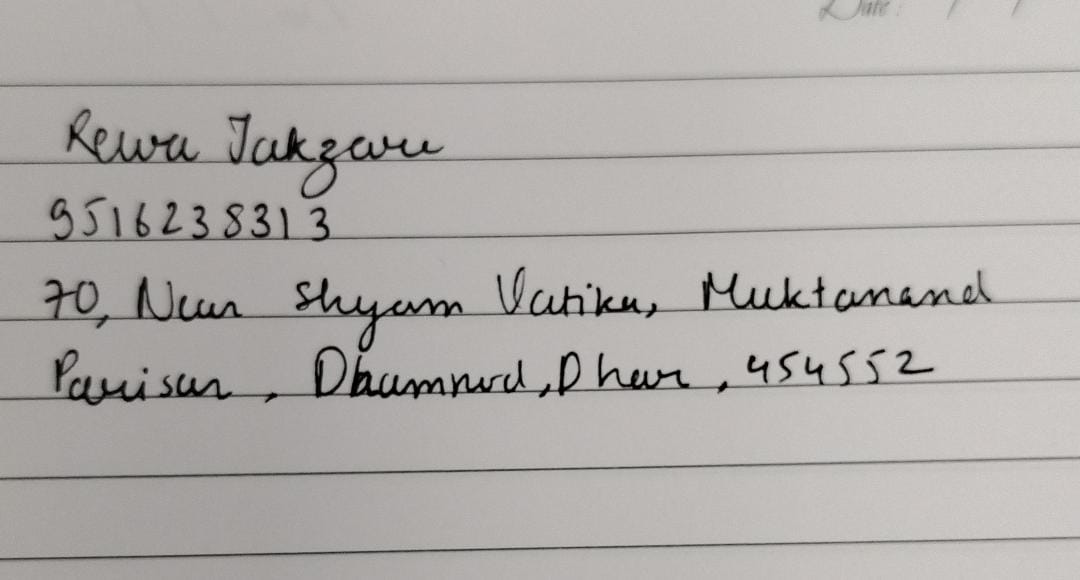 Date: / /
Rewa Jakzare
9516238313
70, Near Shyam Vatika, Muktanand
Parisar, Dhamnod, Dhar, 454552